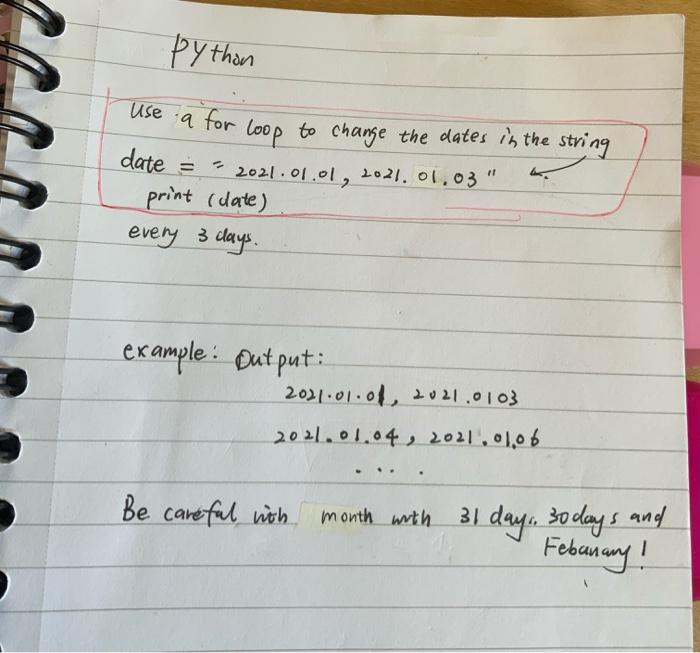 python
Use a for loop to change the dates in the string
date = "2021.01.01, 2021.01.03"
print (date)
every 3 days.
example: Output:
2021.01.01, 2021.0103
2021.01.04, 2021.01.06
....
Be careful with month with 31 days, 30 days and
Febanary!